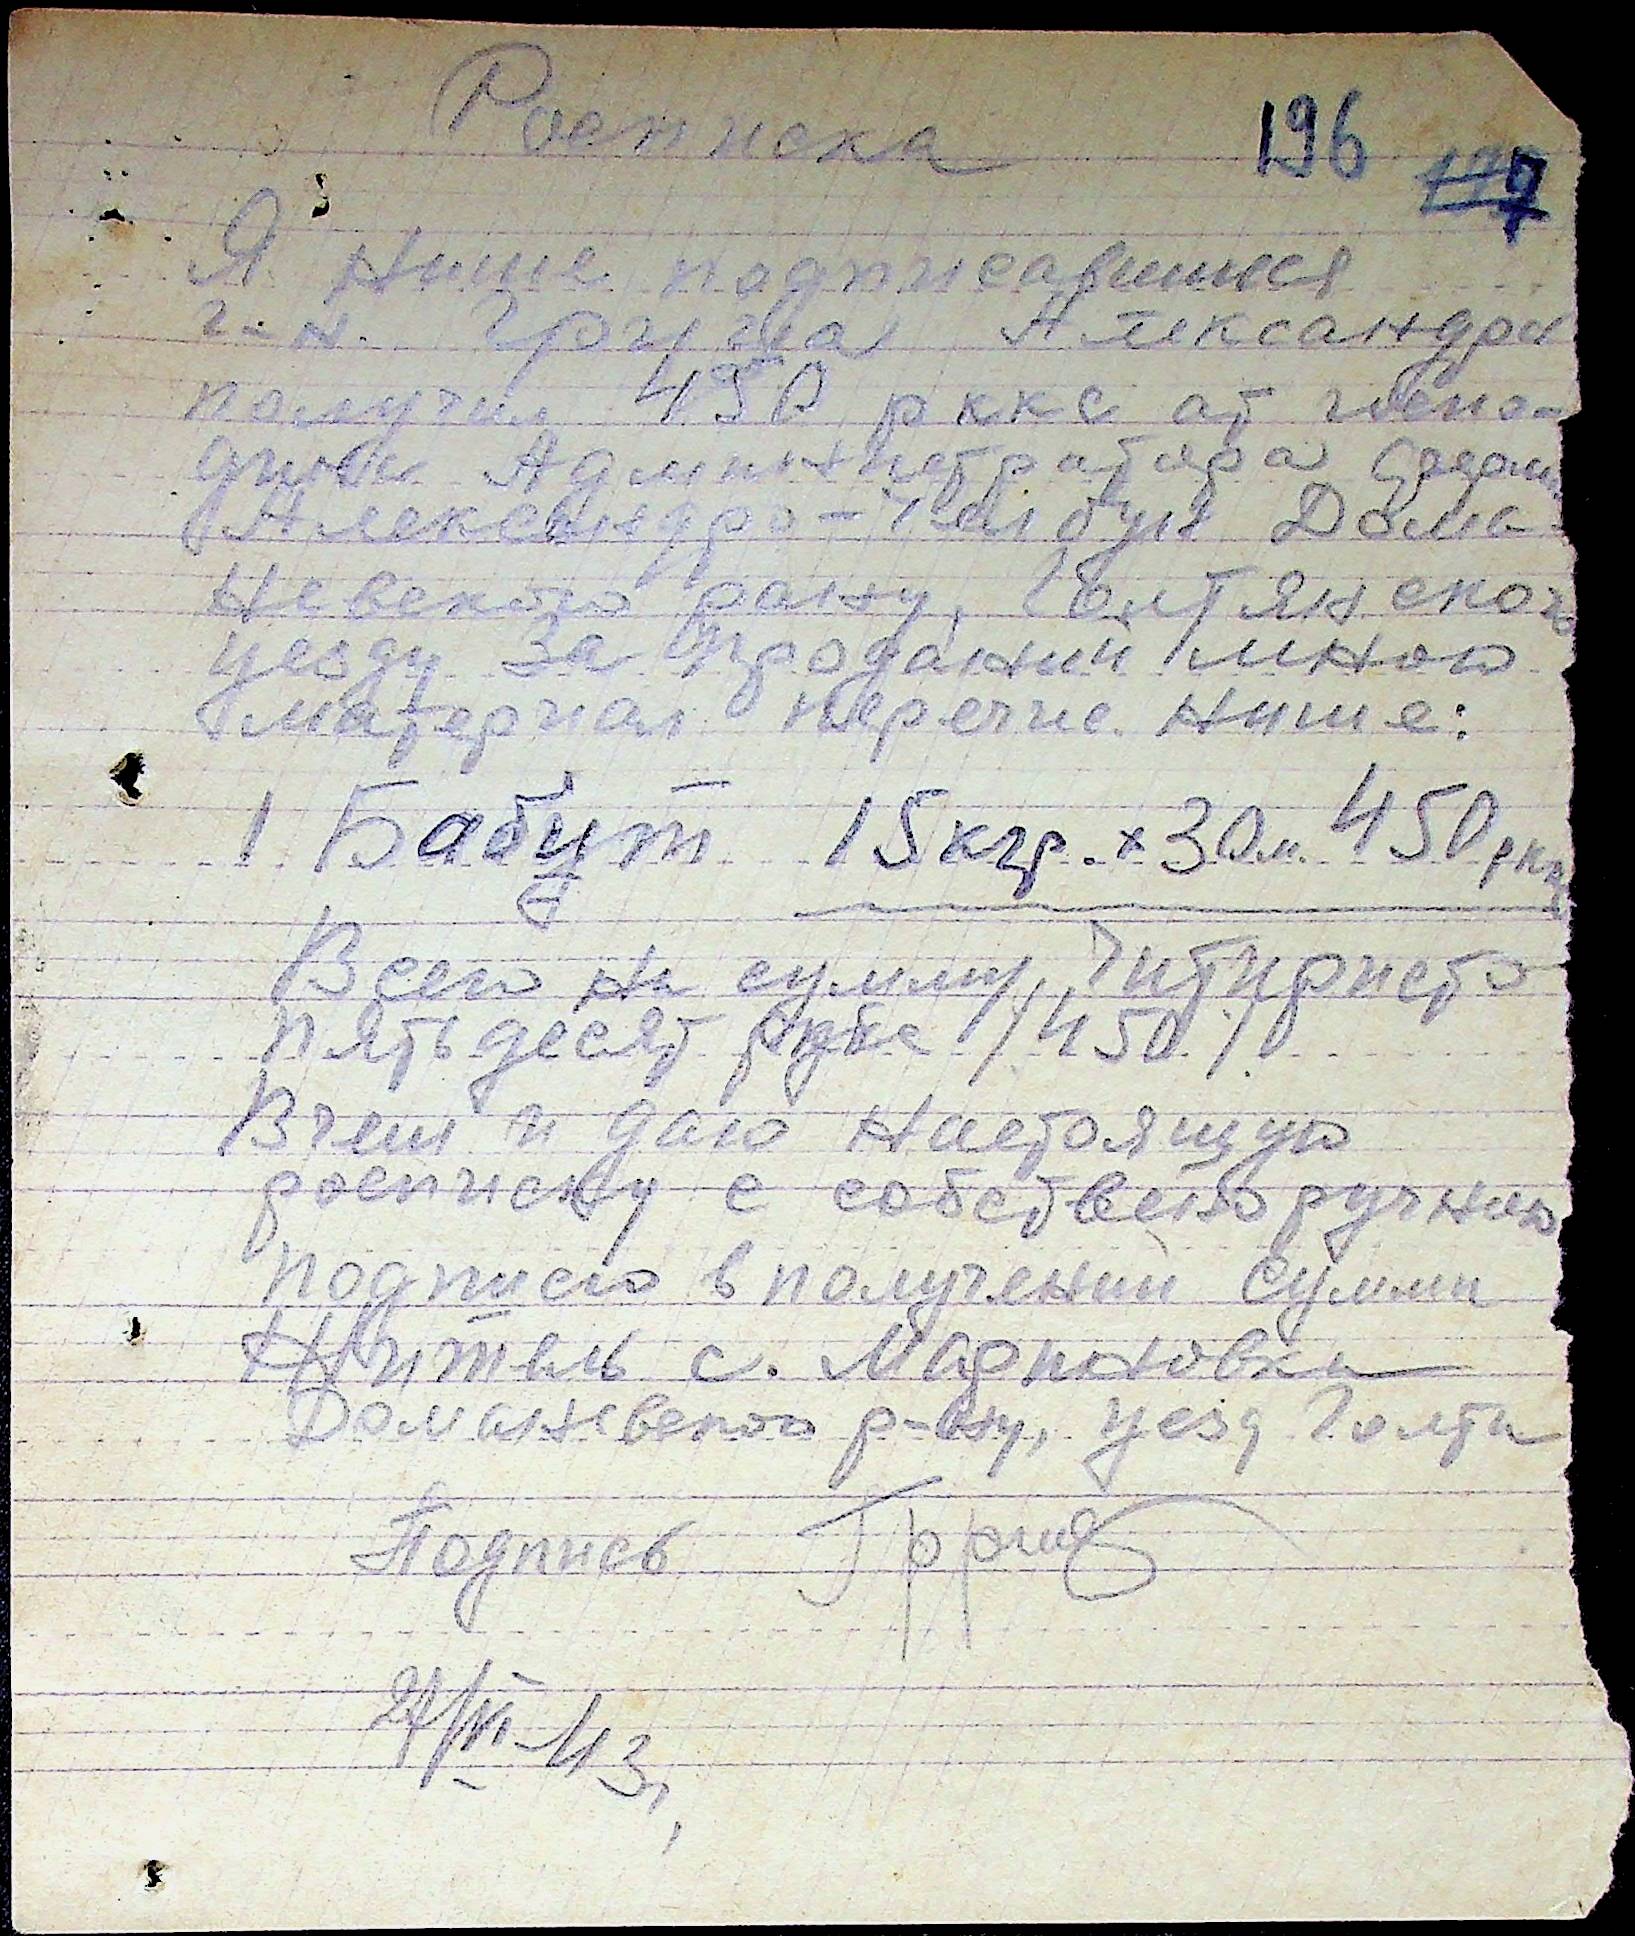 Росписка
196
Я Нише подписавшийся
г-н. Александра
получил 450 рккс от госпо-
дина Администратора
Александро-Дом Дома-
невского рону, Голтянского
уезду За проданий мною
материал перечис. Нише:
1 Бабут 15 кгр. x 30 м. 450 ркк
Всего на сумму Читириста
пятьдесят рккс /450/
Вчем и даю Настоящую
росписку с собственоручною
подписю в получении Сумми
Житель с. Мариновка
Доманевского р-ону, уезд Голта
Подпись
43